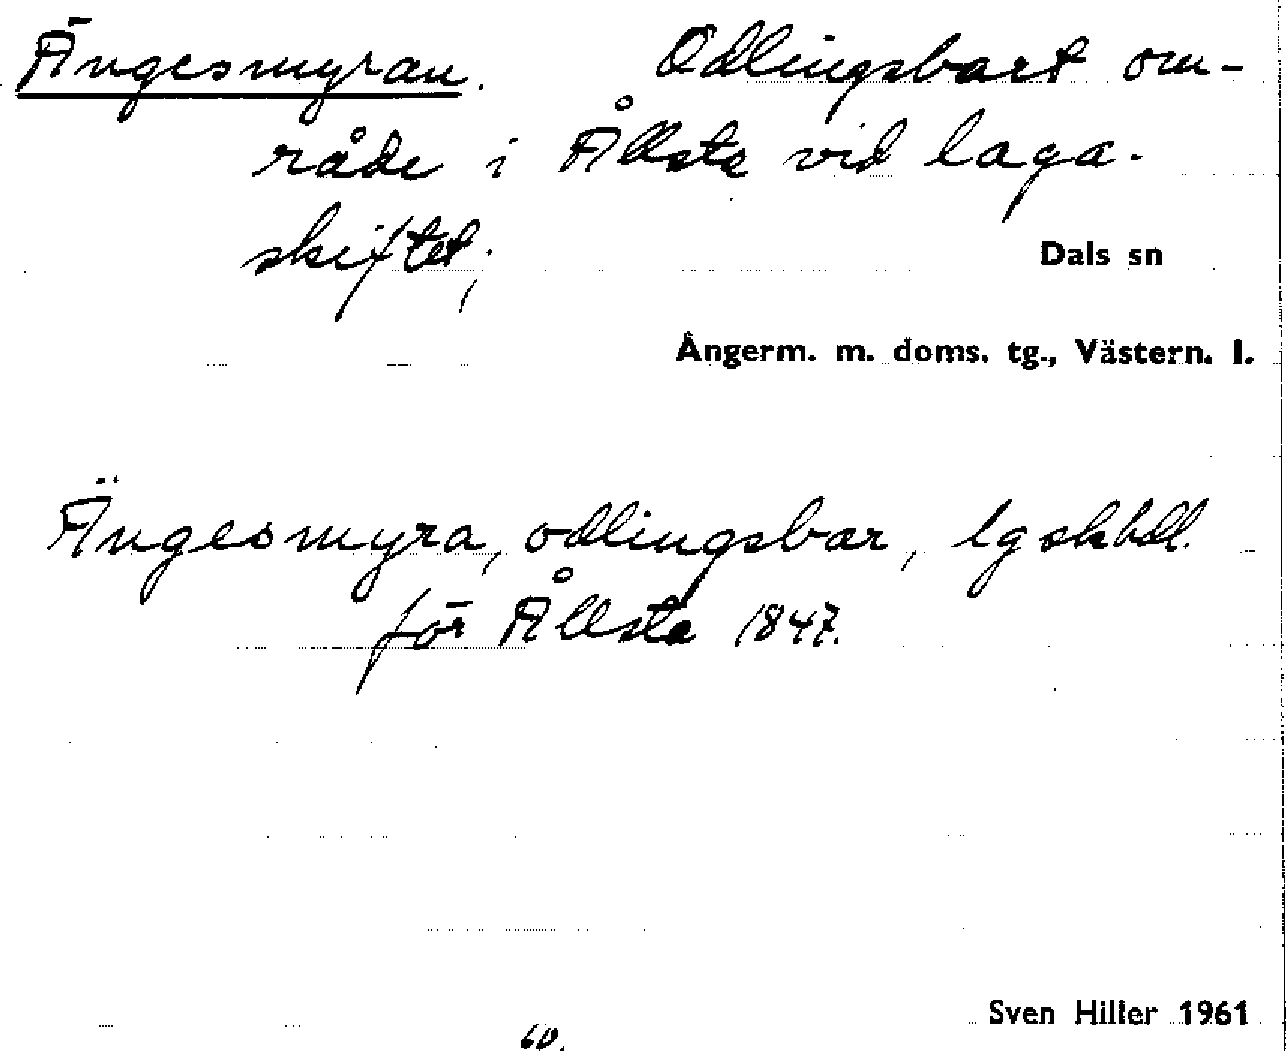 Ängesmyran. Odlingsbart om-
råde i Ållsta vid laga-
skiftet;
Dals sn
Ångerm. m. doms. tg., Västern. l.
Ängesmyra, odlingsbar, lgskhdl.
för Ållsta 1847.
Sven Hiller 1961
60.